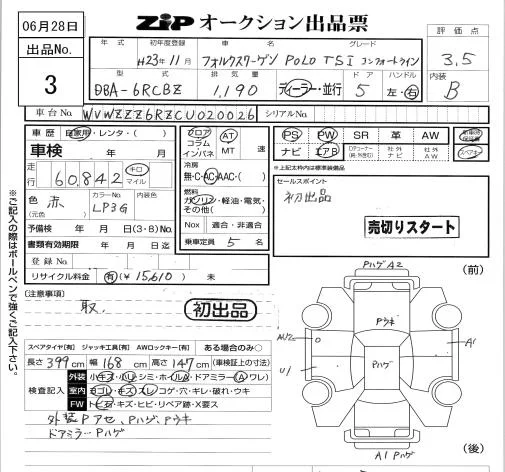 06月28日
ZIP オークション出品票
出品No.
3
年式 初年度登録 車名 グレード
H23年11月 フォルクスワーゲン POLO TSI コンフォートライン
型式 排気量 ドア ハンドル
DBA-6RCBZ 1,190 ディーラー・並行 5 左・右
評価点
3.5
内装
B
車台No. WVWZZZ6RZCU020026 シリアルNo.
車歴 自家用・レンタ・( )
車検 年 月
走行 60,842 キロ マイル
色 赤 (元色) カラーNo. LP3G 内装色
予備検 年 月 日(3・6)No.
書類有効期限 年 月 日迄
登録No.
リサイクル料金 有(¥15,610) 未
フロア コラム インパネ AT MT 速
冷房
無・C・AC・AAC・( )
燃料
ガソリン・軽油・電気・その他( )
Nox 適合・非適合
乗車定員 5 名
PS PW SR 革 AW 新車時保証書
ナビ エアB DPコーナー(前・外・含む) 社外ナビ 社外AW スペアキー
※上記太枠内は標準装備品
セールスポイント
初出品
売切りスタート
※ご記入の際はボールペンで強くご記入下さい。
[注意事項]
取.
初出品
スペアタイヤ[有] ジャッキ工具[有] AWロックキー[有] ある場合のみ○
長さ 399cm 幅 168cm 高さ 147cm (車検証上の寸法)
検査記入
外装 小キズ・小U・シミ・ホイールA・ドアミラー(A・ワレ)
室内 ヨゴレ・キズ・スレ・コゲ・穴・ギレ・破れ・ウキ
FW トビ石・キズ・ヒビ・リペア跡・X要ス
外装Pアセ、Pハゲ、Pウキ
ドアミラーPハゲ
PハゲA2
(前)
Pウキ
A1
U1
Pハゲ
A1Pハゲ
(後)